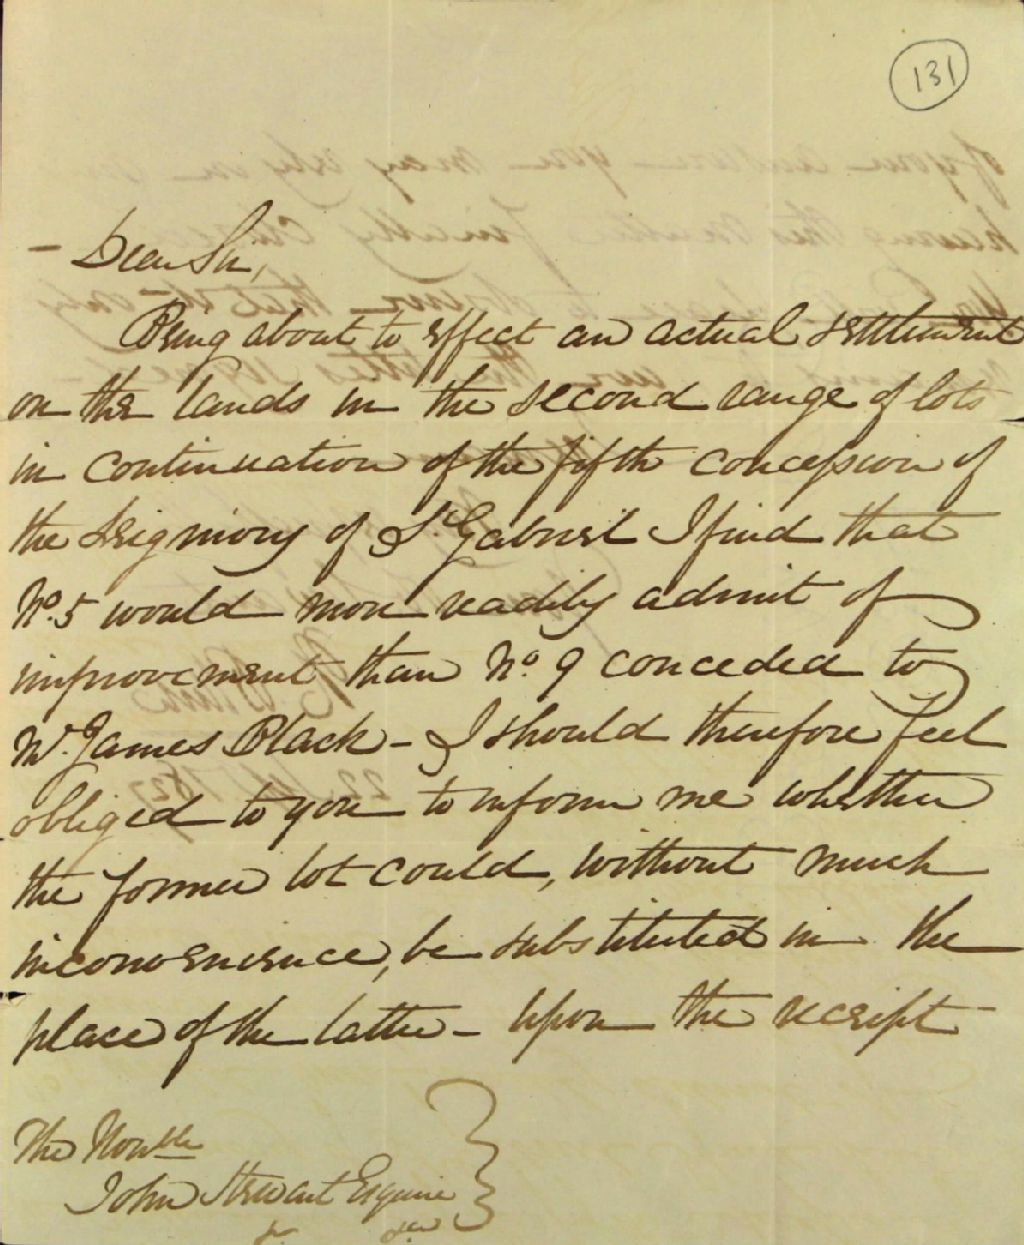 131
Dear Sir,
Being about to effect an actual settlement
on the lands in the second range of lots
in continuation of the fifth concession of
the Seigniory of St. Gabriel I find that
No. 5 would more readily admit of
improvement than No. 9 conceded to
Mr. James Black - I should therefore feel
obliged to you to inform me whether
the former lot could, without much
inconvenience, be substituted in the
place of the latter - Upon the receipt
The Honble
John Stewart Esquire
&c &c